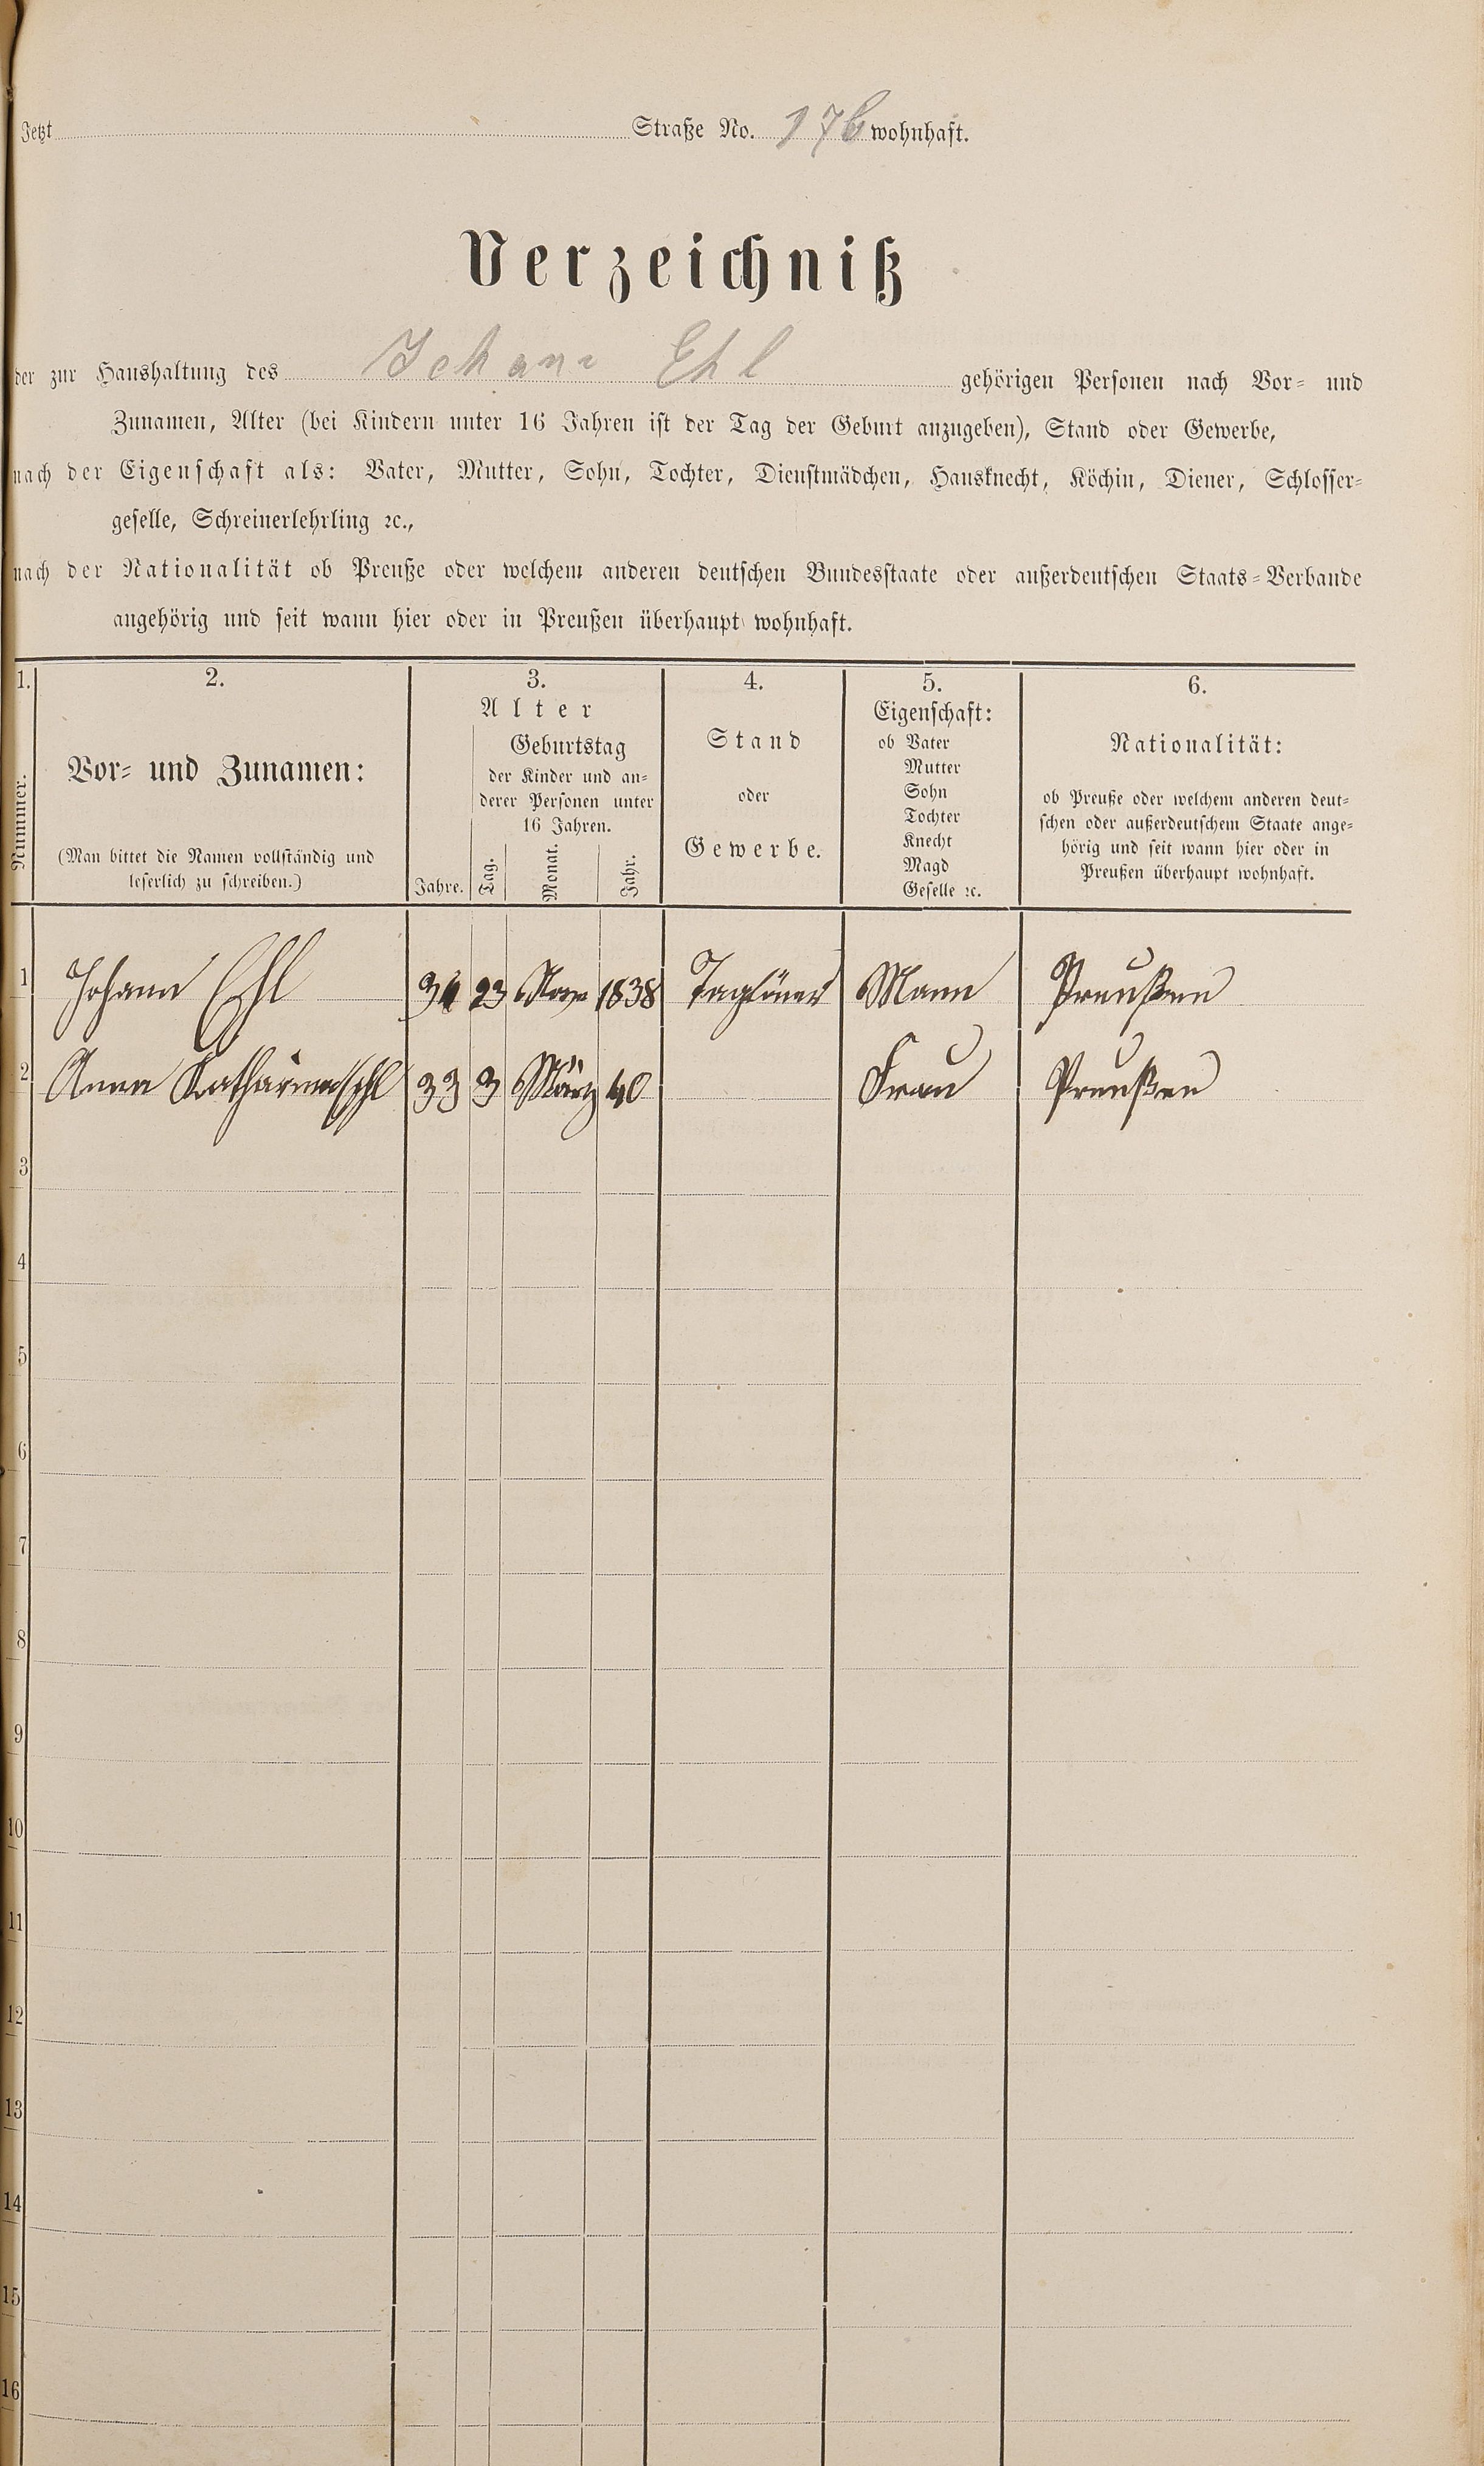 Jetzt Straße No. 176 wohnhaft.
Verzeichniß
der zur Haushaltung des Johann Ehl gehörigen Personen nach Vor- und
Zunamen, Alter (bei Kindern unter 16 Jahren ist der Tag der Geburt anzugeben), Stand oder Gewerbe,
nach der Eigenschaft als: Vater, Mutter, Sohn, Tochter, Dienstmädchen, Hausknecht, Köchin, Diener, Schlosser-
geselle, Schreinerlehrling ꝛc.,
nach der Nationalität ob Preuße oder welchem anderen deutschen Bundesstaate oder außerdeutschen Staats-Verbande
angehörig und seit wann hier oder in Preußen überhaupt wohnhaft.
1. 2. 3. 4. 5. 6.
Nummer.
Vor- und Zunamen:
(Man bittet die Namen vollständig und
leserlich zu schreiben.)
Alter
Geburtstag
der Kinder und an-
derer Personen unter
16 Jahren.
Jahre. Tag. Monat. Jahr.
Stand
oder
Gewerbe.
Eigenschaft:
ob Vater
Mutter
Sohn
Tochter
Knecht
Magd
Geselle ꝛc.
Nationalität:
ob Preuße oder welchem anderen deut-
schen oder außerdeutschem Staate ange-
hörig und seit wann hier oder in
Preußen überhaupt wohnhaft.
1 Johann Ehl 34 23 1838 Taglöner Mann Preußen
2 Anna Katharina Ehl 33 3 März 40 Frau Preußen
3
4
5
6
7
8
9
10
11
12
13
14
15
16